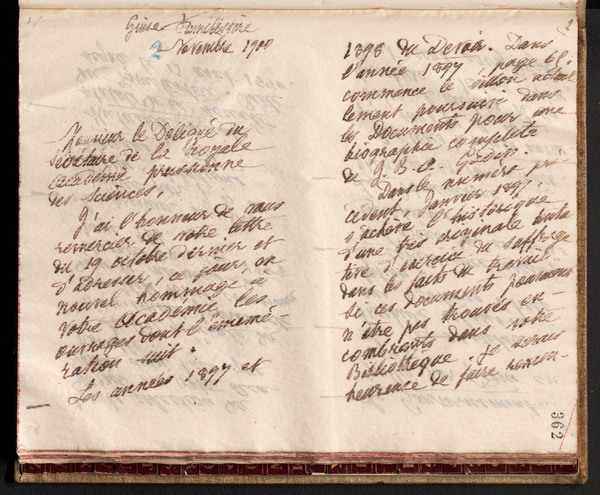 Guise - Familistère
2 Novembre 1900
Monsieur le Délégué du
Secrétaire de la Royale
Académie prussienne
des Sciences,
J'ai l'honneur de vous
remercier de votre lettre
du 19 octobre dernier et
d'adresser, ce jour, en
nouvel hommage à
votre Académie les
ouvrages dont l'énumé-
ration suit.
Les années 1897 et
1898 du Devoir. Dans
l'année 1897 page 65
commence le sillon actuel
lement poursuivi dans
les Documents pour une
biographie complète
de J. B. A. Godin.
Dans le numéro pré-
cédent, Janvier 1897,
s'achève l'historique
d'une très originale tenta
tive d'exercice du suffrage
dans les faits du travail.
Si ces documents pouvaient
n'être pas trouvés en-
combrants dans votre
Bibliothèque, je serais
heureuse de faire remon-
362